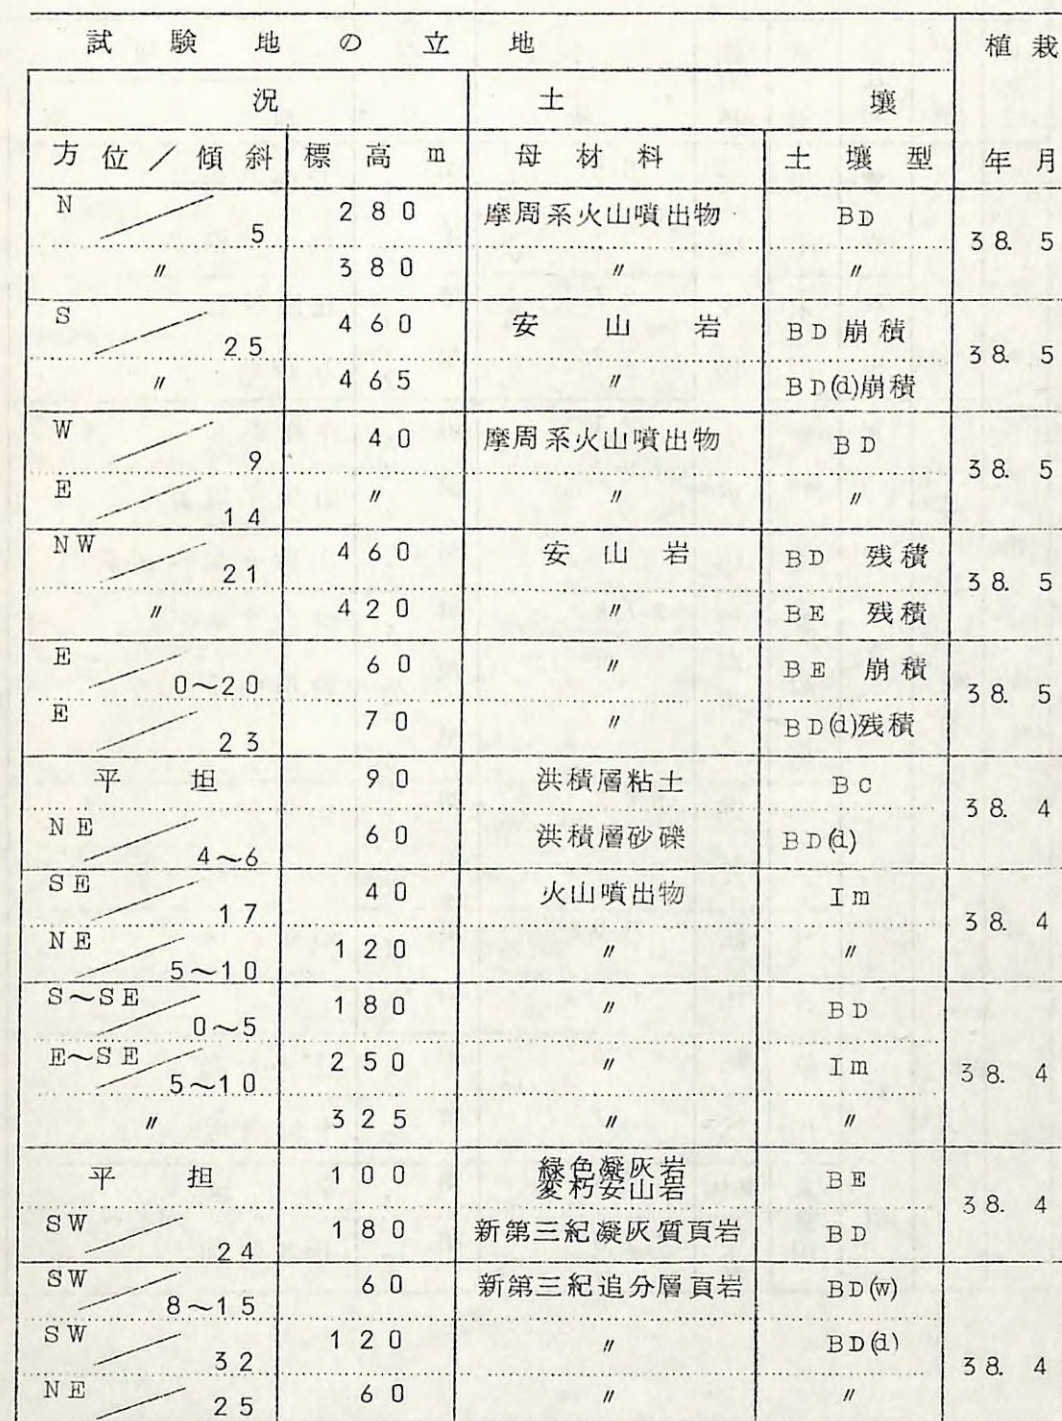 試験地の立地 植栽
況 土壌
方位／傾斜 標高m 母材料 土壌型 年月
N／5 280 摩周系火山噴出物 BD 38. 5
〃 380 〃 〃
S／25 460 安山岩 BD崩積 38. 5
〃 465 〃 BD(d)崩積
W／9 40 摩周系火山噴出物 BD 38. 5
E／14 〃 〃 〃
NW／21 460 安山岩 BD 残積 38. 5
〃 420 〃 BE 残積
E／0～20 60 〃 BE 崩積 38. 5
E／23 70 〃 BD(d)残積
平坦 90 洪積層粘土 BC 38. 4
NE／4～6 60 洪積層砂礫 BD(d)
SE／17 40 火山噴出物 Im 38. 4
NE／5～10 120 〃 〃
S～SE／0～5 180 〃 BD
E～SE／5～10 250 〃 Im 38. 4
〃 325 〃 〃
平担 100 緑色凝灰岩 BE 38. 4
変朽安山岩
SW／24 180 新第三紀凝灰質頁岩 BD
SW／8～15 60 新第三紀追分層頁岩 BD(w)
SW／32 120 〃 BD(d) 38. 4
NE／25 60 〃 〃